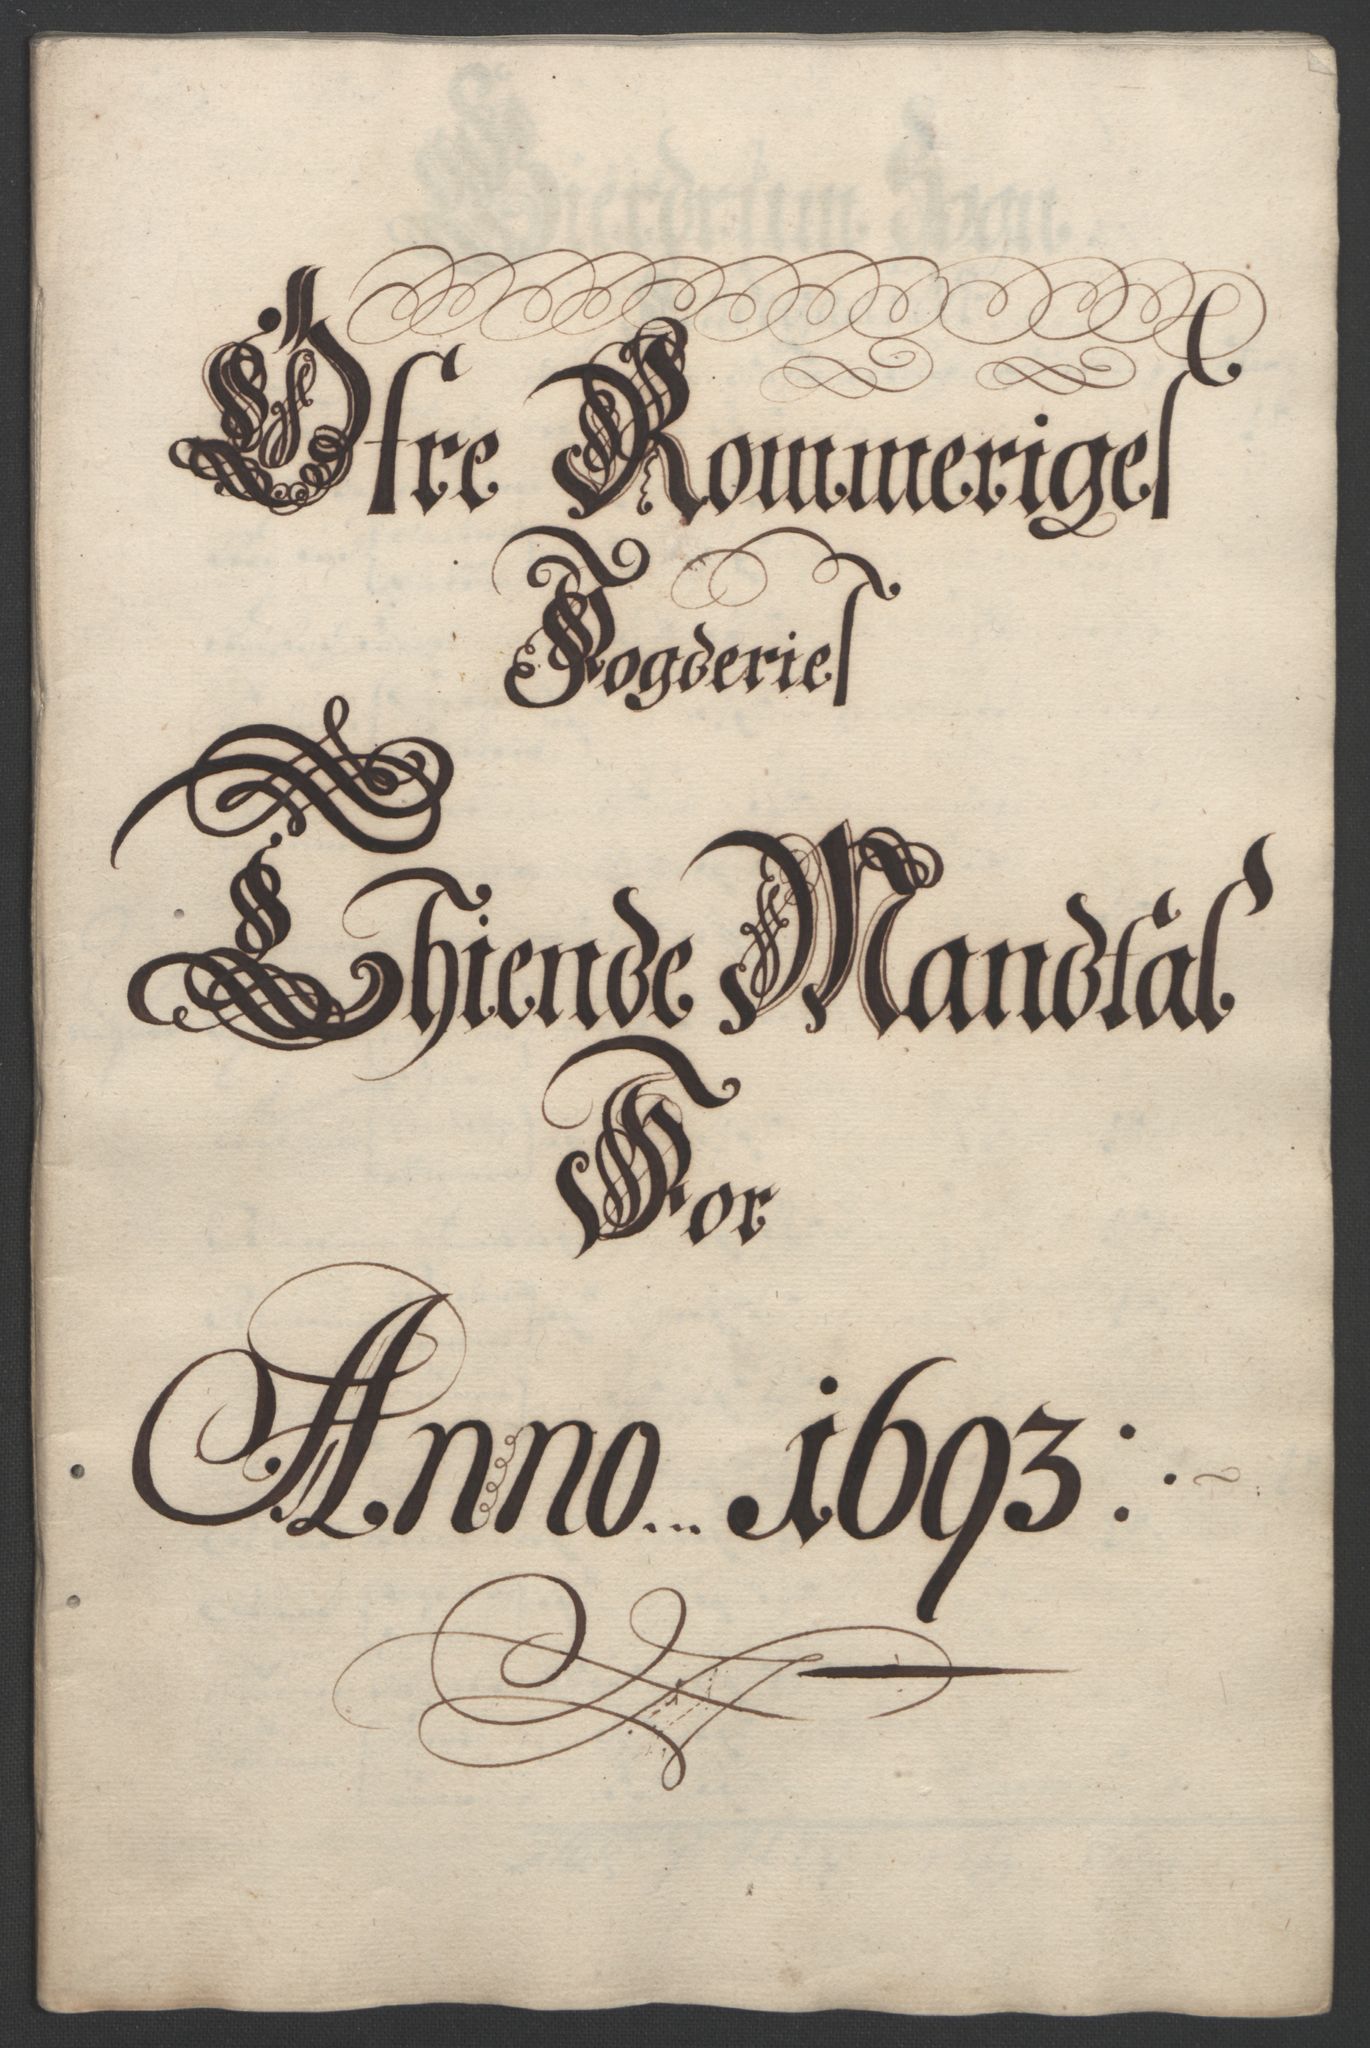 Øfre Rommeriges
Fogderies
Thiende Mandtal
For
Anno 1693: